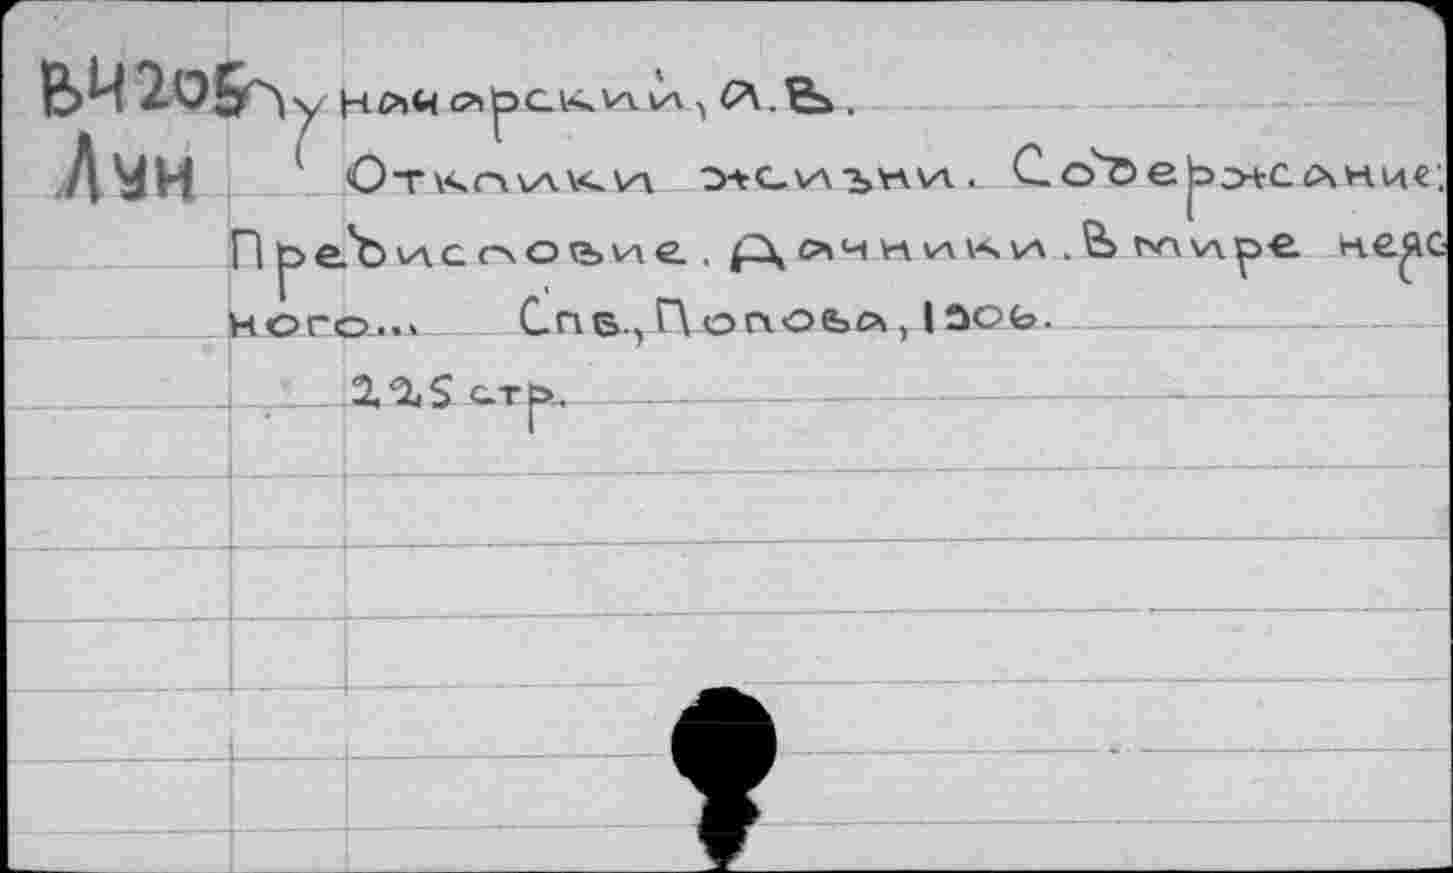 В4205 Луначарский, А.В.
Лун Отклики жизни. Содержание:
Предисловие. Дачники. В мире неяс
ного... Спб., Попова, 1906.
225 стр.